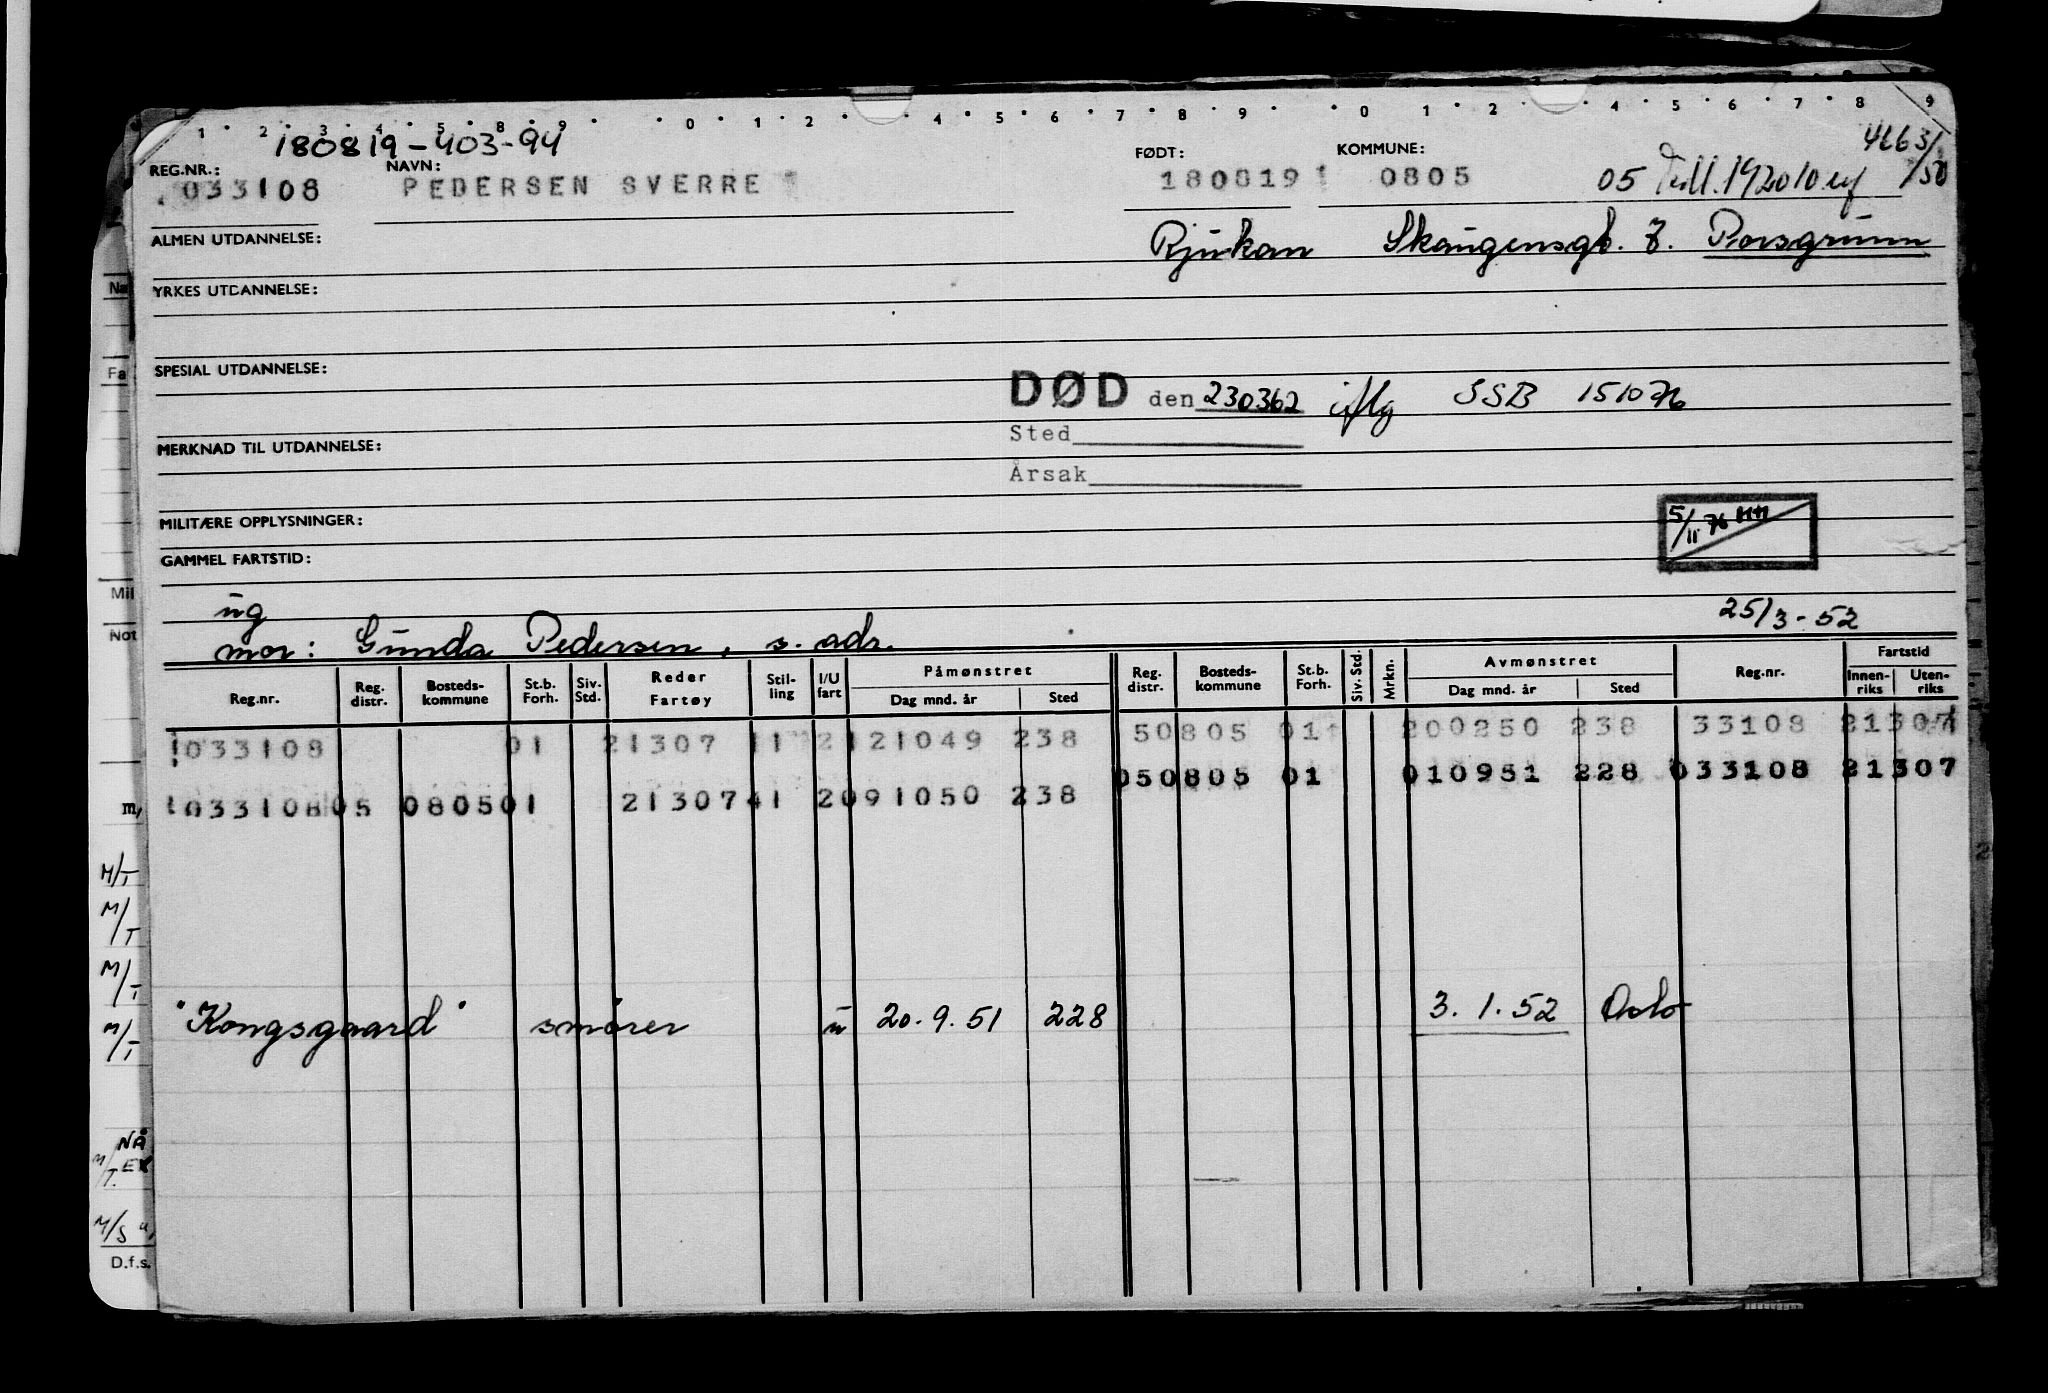 1 2 3 4 5 8 9 0 1 2 4 5 6 7 8 9 0 1 2 4 5 6 7 8 9
180819-403-94
4663/50
REG.NR.: NAVN: FØDT: KOMMUNE:
033108 PEDERSEN SVERRE 180819 0805 05
ALMEN UTDANNELSE: Rjukan Skaugensgt. 7. Porsgrunn
YRKES UTDANNELSE:
SPESIAL UTDANNELSE:
DØD den 230362 iflg SSB 151076
Sted
MERKNAD TIL UTDANNELSE:
Årsak
MILITÆRE OPPLYSNINGER:
5/11 76
GAMMEL FARTSTID:
ug
25/3-52
mor: Gunda Pedersen, s. adr.
Reg.nr. Reg. distr. Bosteds- kommune St.b. Forh. Siv. Std. Reder Fartøy Stil- ling I/U fart Påmønstret Dag mnd. år Sted Reg. distr. Bosteds- kommune St.b. Forh. Siv. Std. Mrkn. Avmønstret Dag mnd. år Sted Reg.nr. Fartstid Innen- riks Uten- riks
033108 01 21307 11 2 121049 238 50805 01 200250 238 33108 21307
050805 01 010951 228 033108 21307
033108 05 0805 01 21307 41 2 091050 238
"Kongsgaard" smører u 20.9.51 228 3.1.52 Oslo
Na
Fa
Mil
Not
m,
M/T
M/T
M/T
M/T
NÅ
M/T. EX
M/S
D.f.s.